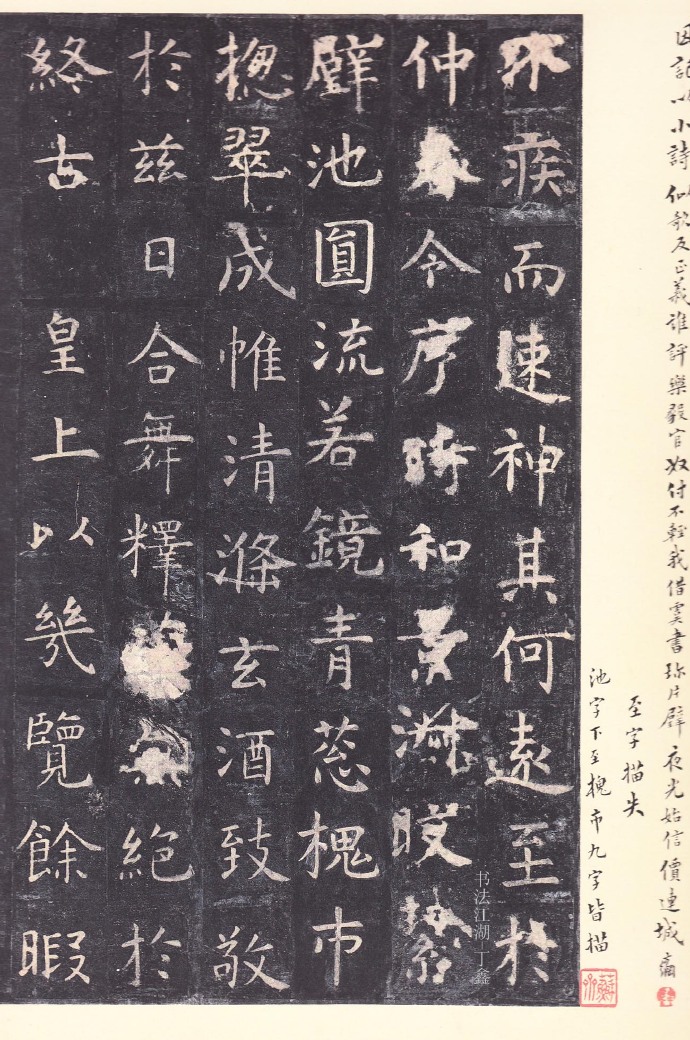 因記以小詩 仙歌及正義誰評樂毅官奴付不輕我借虞書珎片璧夜光始信價連城
至字描失
池字下至槐市九字皆描
不疾而速神其何遠至於
仲春令序時和景淑
璧池圓流若鏡青葱槐市
揔翠成帷清滌玄酒致敬
於茲日合舞釋菜 絕於
終古 皇上以幾覽餘暇
书法江湖 丁鑫